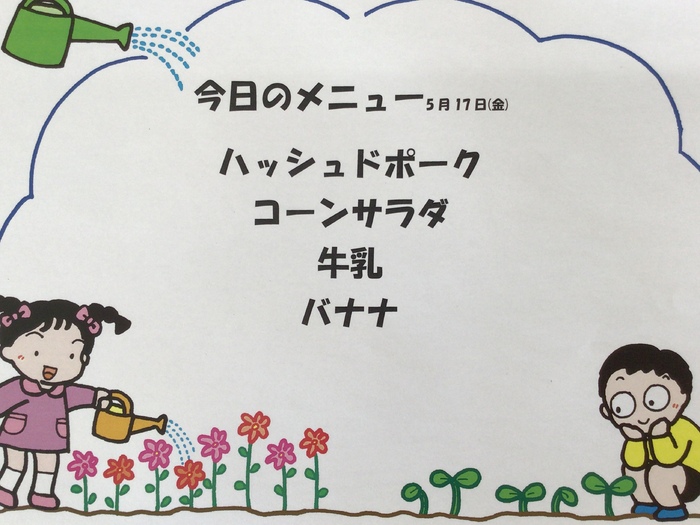 今日のメニュー5月17日(金)
ハッシュドポーク
コーンサラダ
牛乳
バナナ